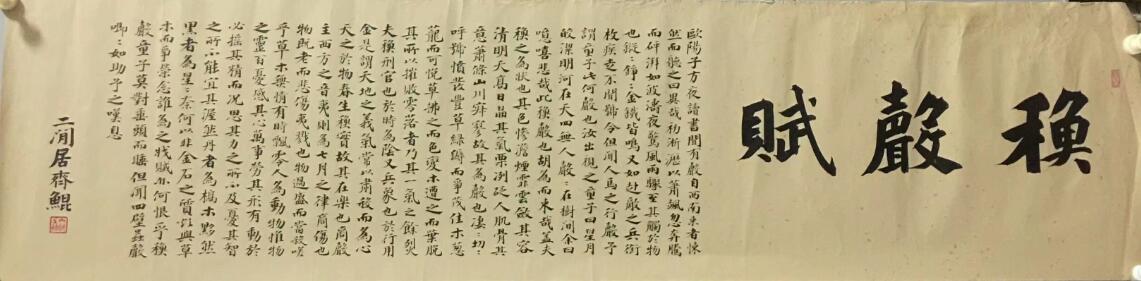 穐聲賦
歐陽子方夜讀書聞有聲自西南來者悚
然而聽之曰異哉初淅瀝以蕭颯忽奔騰
而砰湃如波濤夜驚風雨驟至其觸於物
也鏦:錚:金鐵皆鳴又如赴敵之兵銜
枚疾走不聞號令但聞人馬之行聲予
謂童子此何聲也汝出視之童子曰星月
皎潔明河在天四無人聲:在樹間余曰
噫嘻悲哉此穐聲也胡為而來哉蓋夫
穐之為狀也其色慘澹煙霏雲斂其容
清明天高日晶其氣栗冽砭人肌骨其
意蕭條山川寂寥故其為聲也淒:切:
呼號憤發豐草綠縟而爭茂佳木蔥
蘢而可悅草拂之而色變木遭之而葉脫
其所以摧敗零落者乃其一氣之餘烈
夫穐刑官也於時為陰又兵象也於行用
金是謂天地之義氣常以肅殺而為心
天之於物春生穐實故其在樂也商聲
主西方之音夷則為七月之律商傷也
物既老而悲傷夷戮也物過盛而當殺嗟
乎草木無情有時飄零人為動物惟物
之靈百憂感其心萬事勞其形有動於
必搖其精而況思其力之所不及憂其智
之所不能宜其渥然丹者為槁木黟然
黑者為星:奈何以非金石之質欲與草
木而爭榮念誰為之戕賊亦何恨乎穐
聲童子莫對垂頭而睡但聞四壁蟲聲
唧:如助予之嘆息
二閒居齊鯤